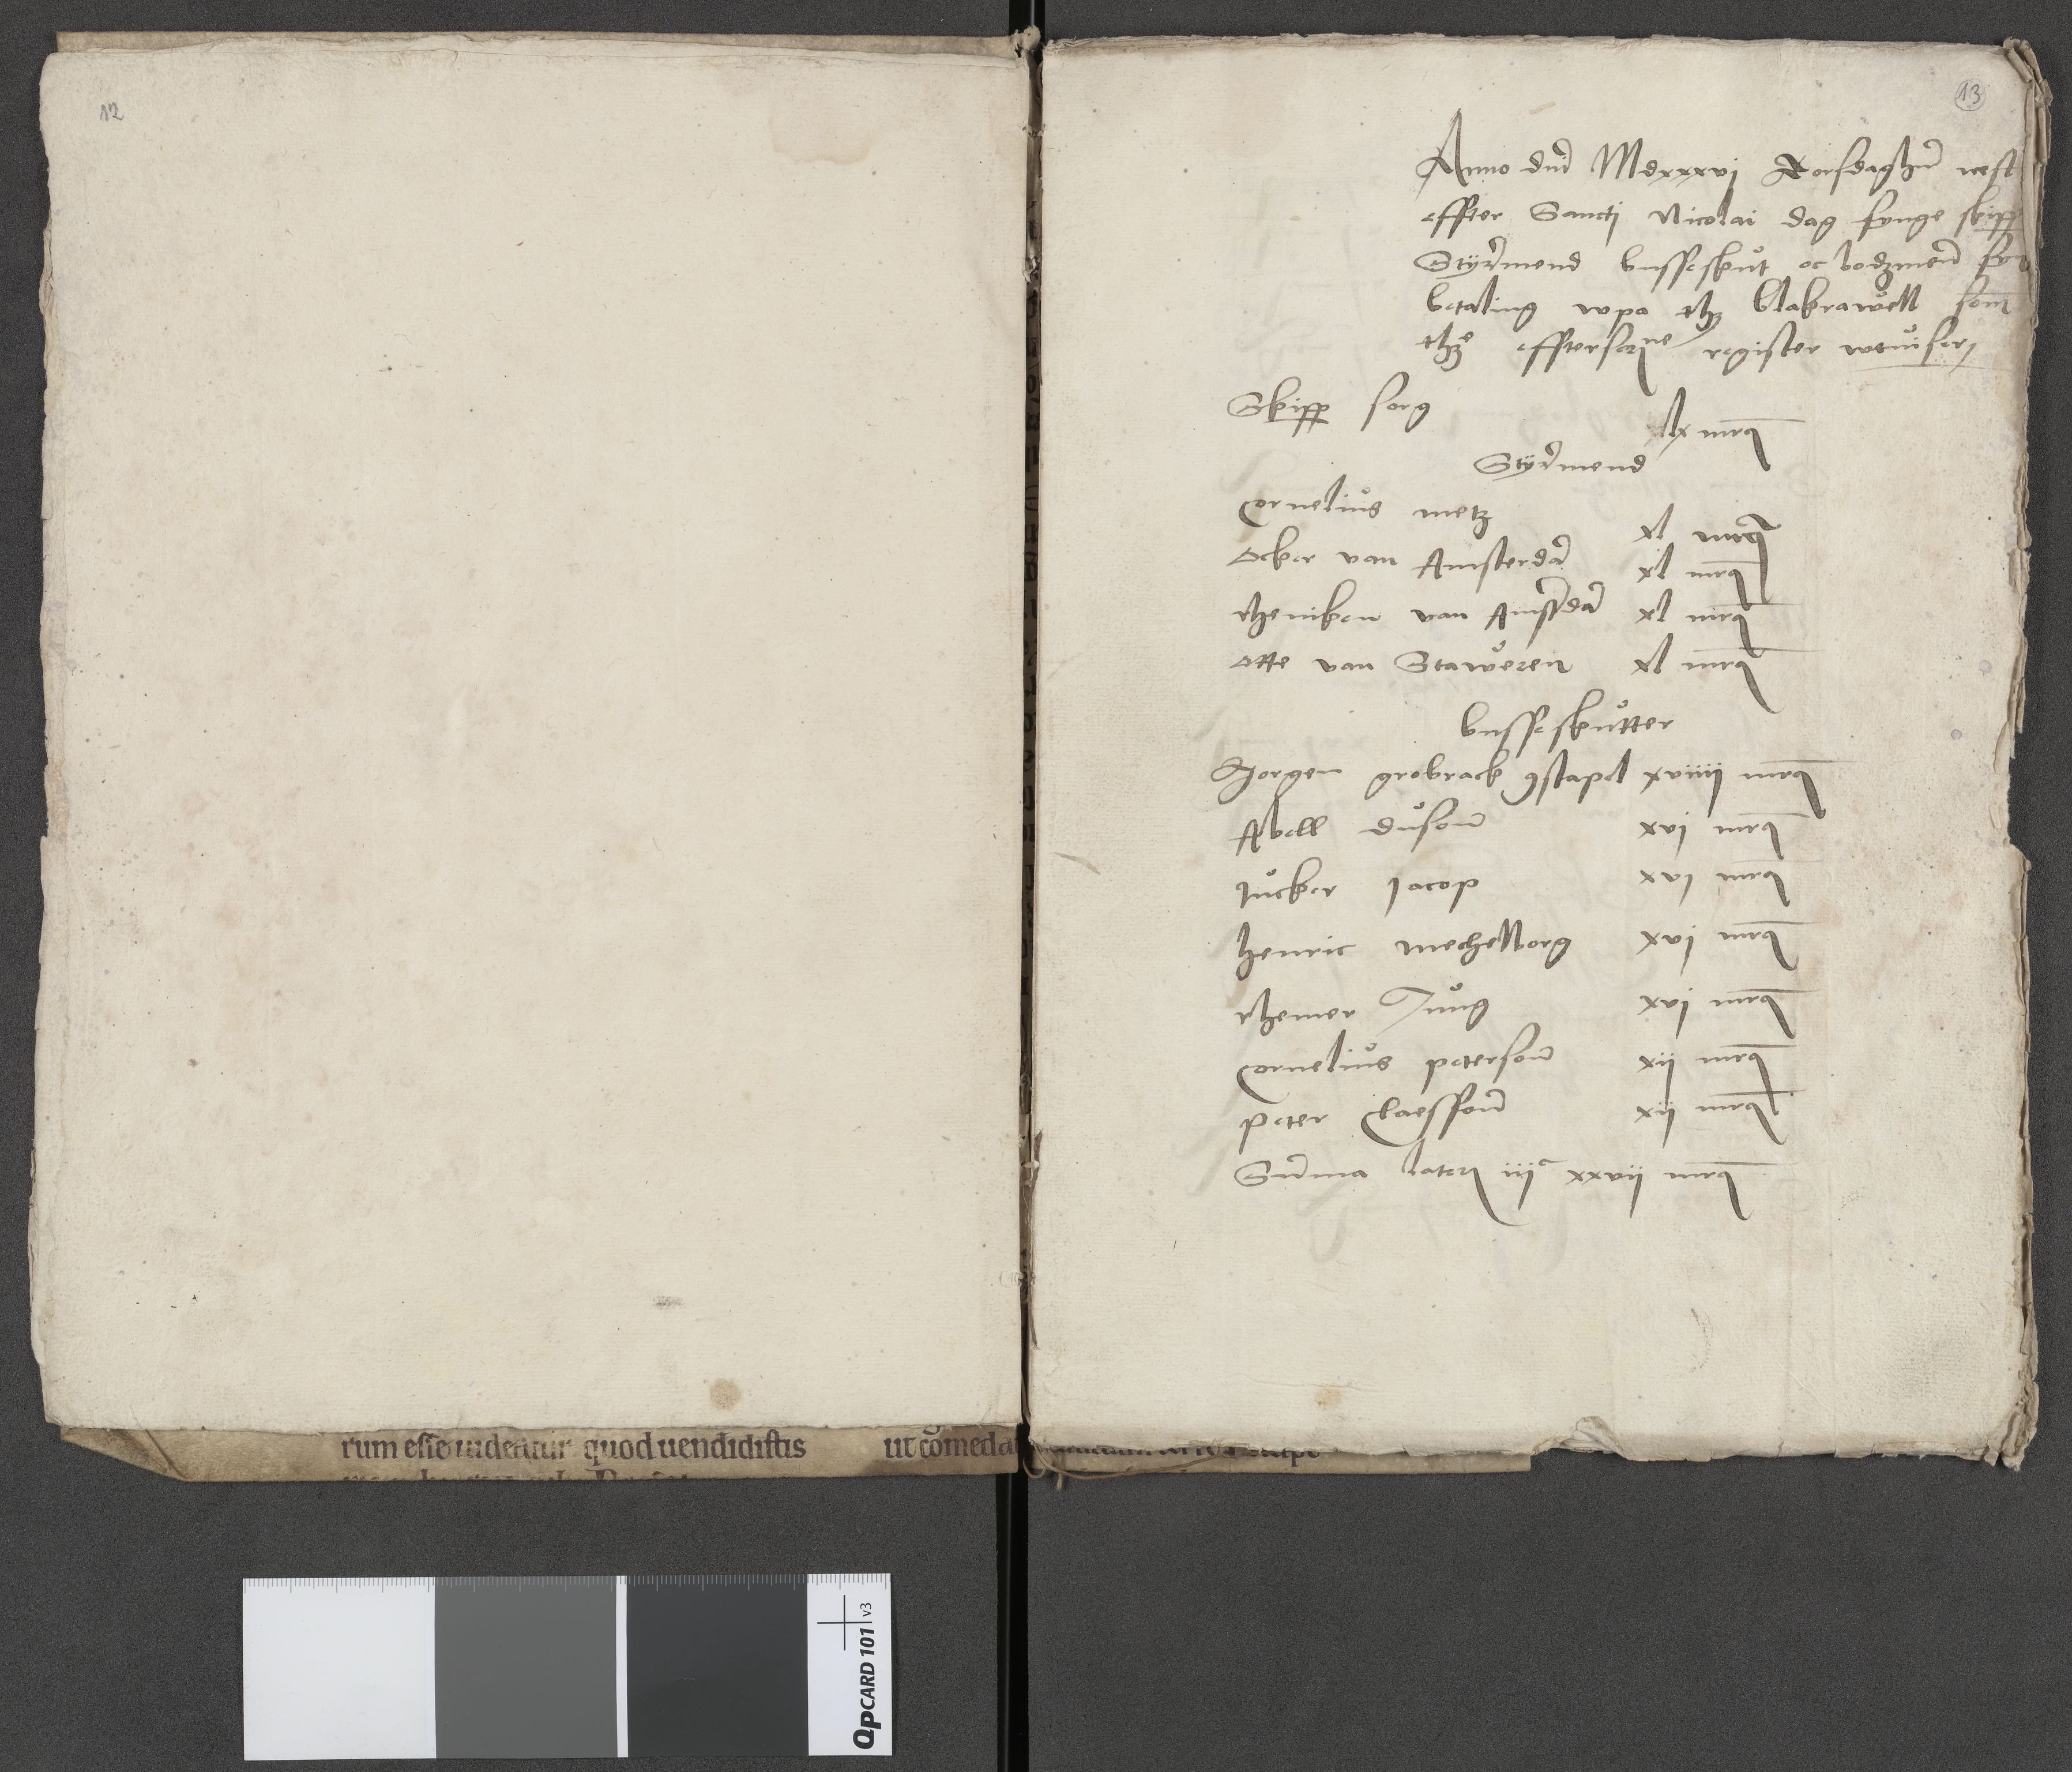 12
13
Anno dnī Mdxxxvi Torsdaghīn nest
effter Sancti Nicolai dag finge skipp
Styrmend bussesküt oc bodzmenū
betaling vpa thz blakrawell som
thze effterscrne register vtuiser
Skipp sorg lx mrq
Styrmend
Cornelius metz xl mrq
Ocker van Amsterdā xl mrq
rheniken van Amsterdā xl mrq
otte van Staweren xl mrq
busseskütter
Jorgen grobrack 9stapel xviiij mrq
Abell dusonn xvj mrq
Jucker Jacop xvj mrq
henric mechelborg xvj mrq
rhemer Jung xvj mrq
Cornelius petersonn xij mrq
peter Claessonn xij mrq
Summa lateris iijc xxvij mrq
rum esse uidentur quod uendidistis ut cōmeda
QpCARD 101 v3